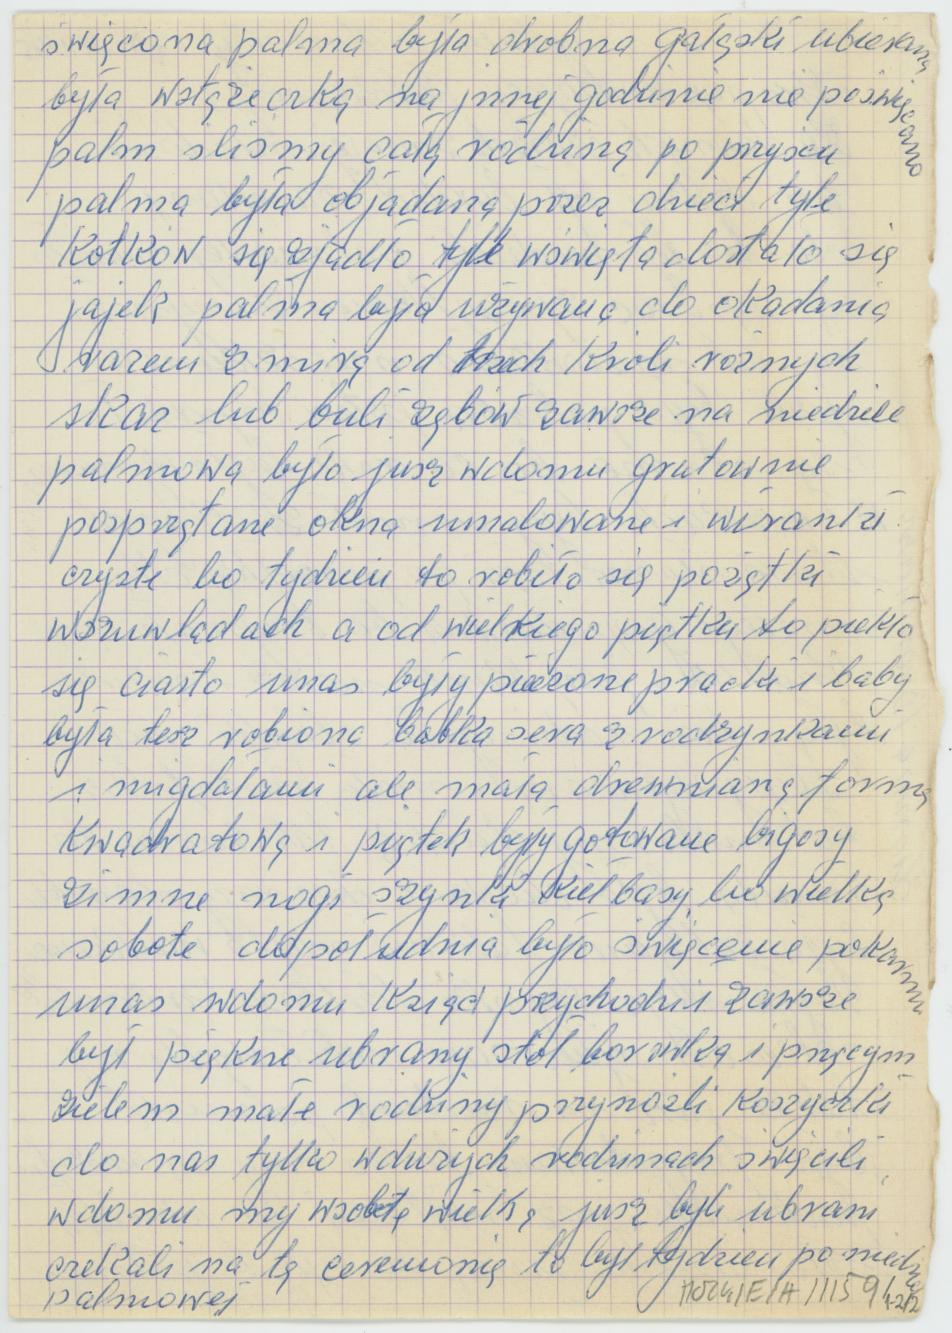 święcona palma była drobna gałąski ubierana
była wstążeczką na jnnej godzinie nie poświęcano
palm śliśmy całą rodziną po przyjsciu
palma była objadana przez dzieci tyle
kotków się zjadło tyle wświęta dostało się
jajek palma była używana do okadania
razem z mirą od trzech Króli rożnych
skaz lub buli zębów zawsze na niedziele
palmową było jusz wdomu gratownie
posprzętane okna umalowane i wiranki
czyste bo tydzień to robiło się pożątki
wszuwladach a od wielkiego piętku to piekło
się ciasto unas były pieczone pracki i baby
była tesz robiona babka sera z rodzynkami
i migdałami ale małą drewnianą formą
kwadratową i piątek były gotowane bigosy
zimne nogi szynki kiełbasy bo wielką
sobote dopołudnia było święcenie pokarmu
unas wdomu Ksiąd przychodził zawsze
był pięknie ubrany stół borówką i pnącym
zielem małe rodziny przynosli koszyczki
do nas tylko wdużych rodzinach święcili
wdomu my wsobotę wielką jusz byli ubrani
czekali na tą ceremonię to był tydzień po niedzieli
palmowej